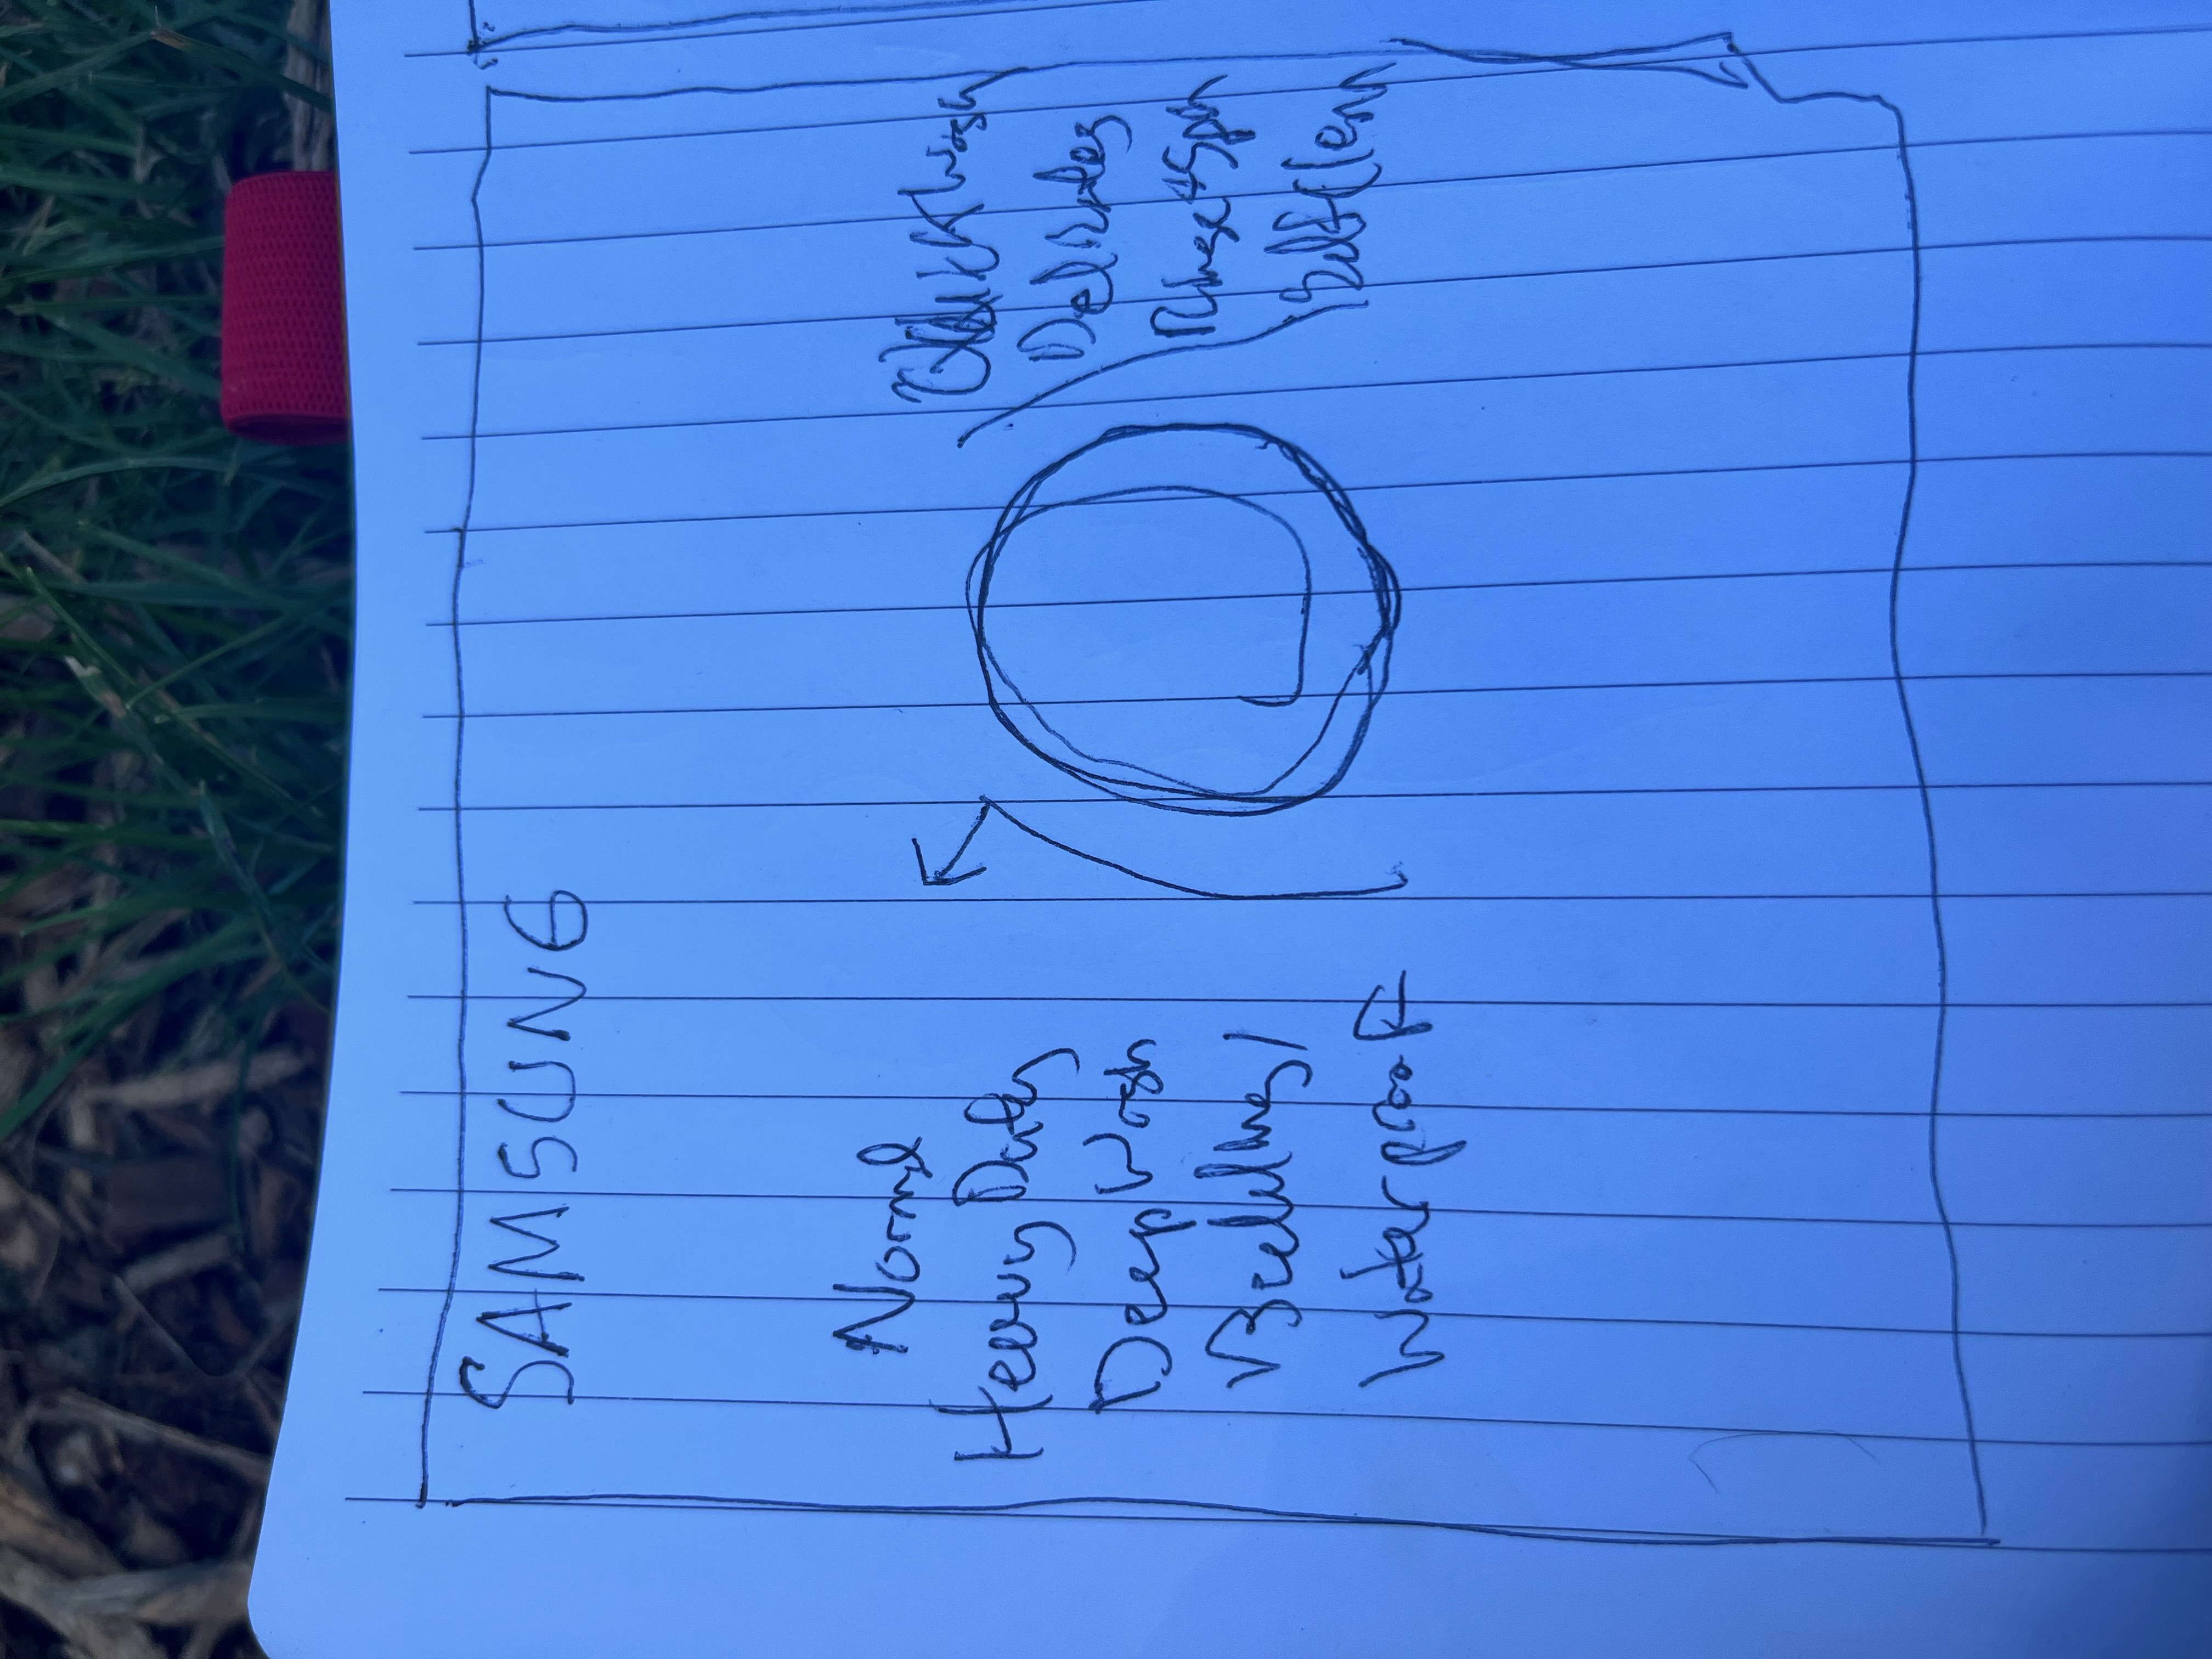 SAMSUNG
Normal
Heavy Duty
Deep Wash
Bedding/
Waterproof
Quick Wash
Delicates
Rinse + Spin
Self Clean